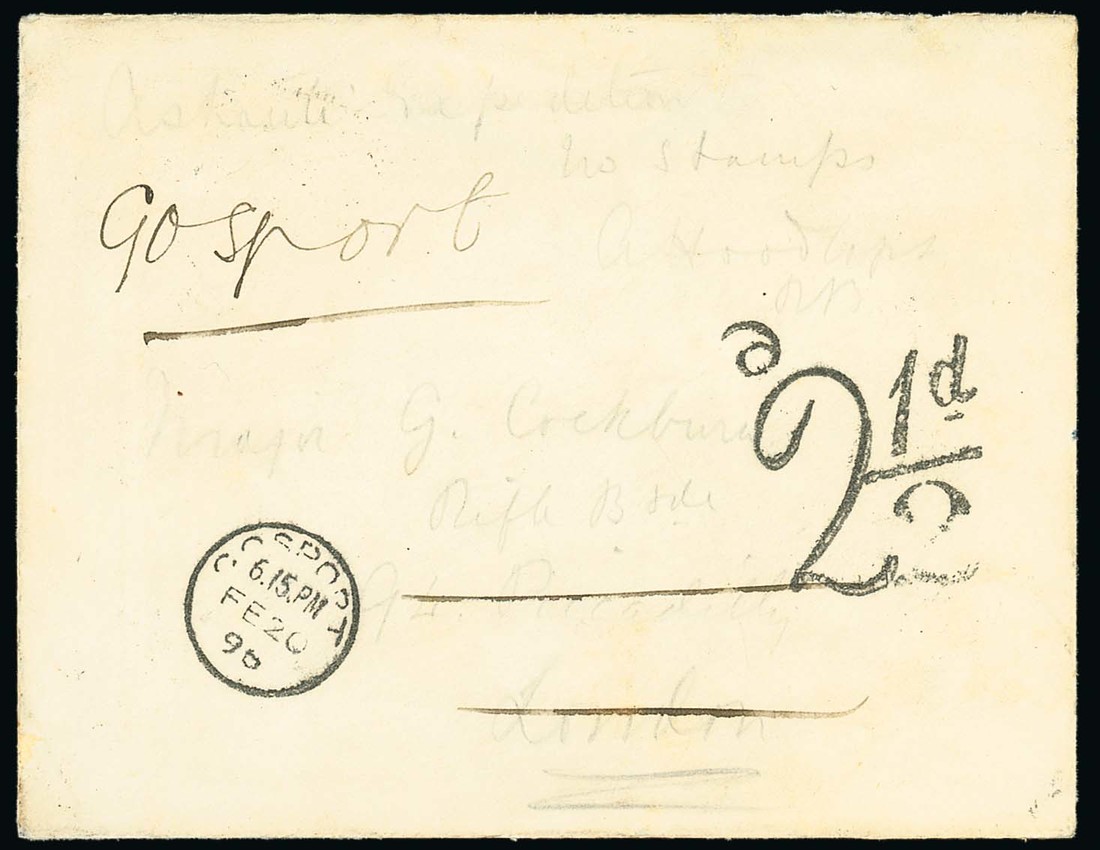 Ashanti Expedition
No Stamps
Gosport
RB
2 1d/2
Major G. Cockburn
Rifle Bde
94 Piccadilly
London
GOSPORT
6.15.PM
FE20
96